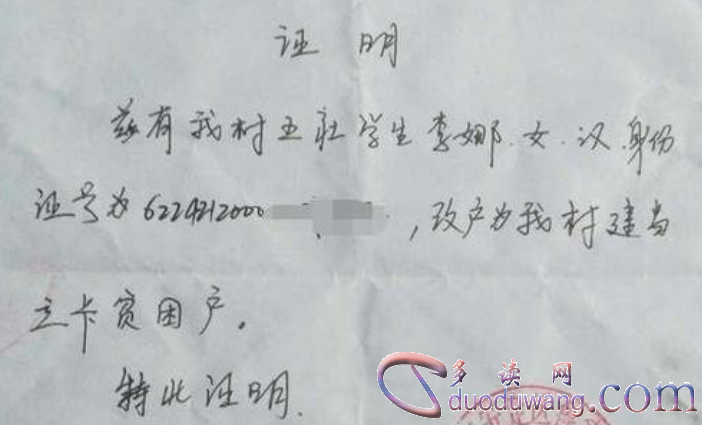 证 明
兹有我村五社学生李娜.女.汉.身份
证号为6224212000,改户为我村建与
立卡贫困户。
特此证明.
多读网
duoduwang.com